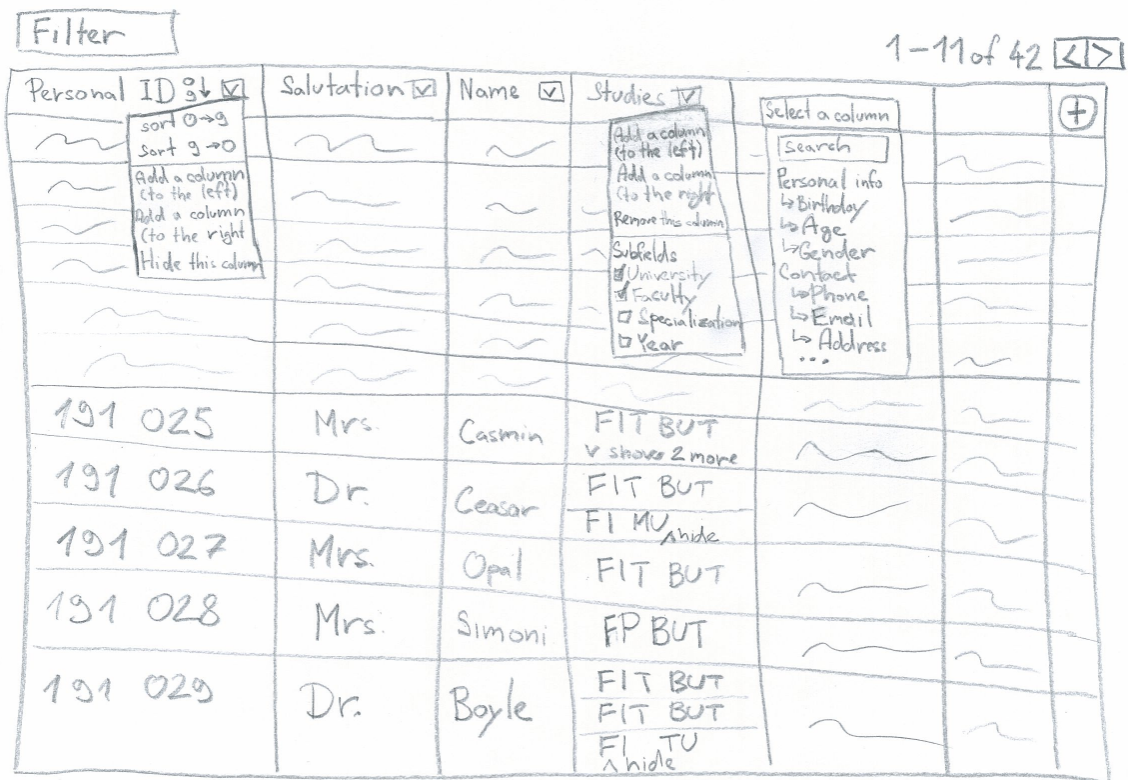 Filter
1-11 of 42 < >
Personal ID 9↓
Salutation
Name
Studies
+
sort 0→9
sort 9→0
Add a column
(to the left)
Add a column
(to the right
Hide this column
Add a column
(to the left)
Add a column
(to the right
Remove this column
Subfields
University
Faculty
Specialization
Year
Select a column
Search
Personal info
↳Birthday
↳Age
↳Gender
Contact
↳Phone
↳Email
↳Address
...
191 025 Mrs. Casmin FIT BUT
v show 2 more
191 026 Dr. Ceasar FIT BUT
FI MU ^hide
191 027 Mrs. Opal FIT BUT
191 028 Mrs. Simoni FP BUT
191 029 Dr. Boyle FIT BUT
FIT BUT
FI TU
^ hide